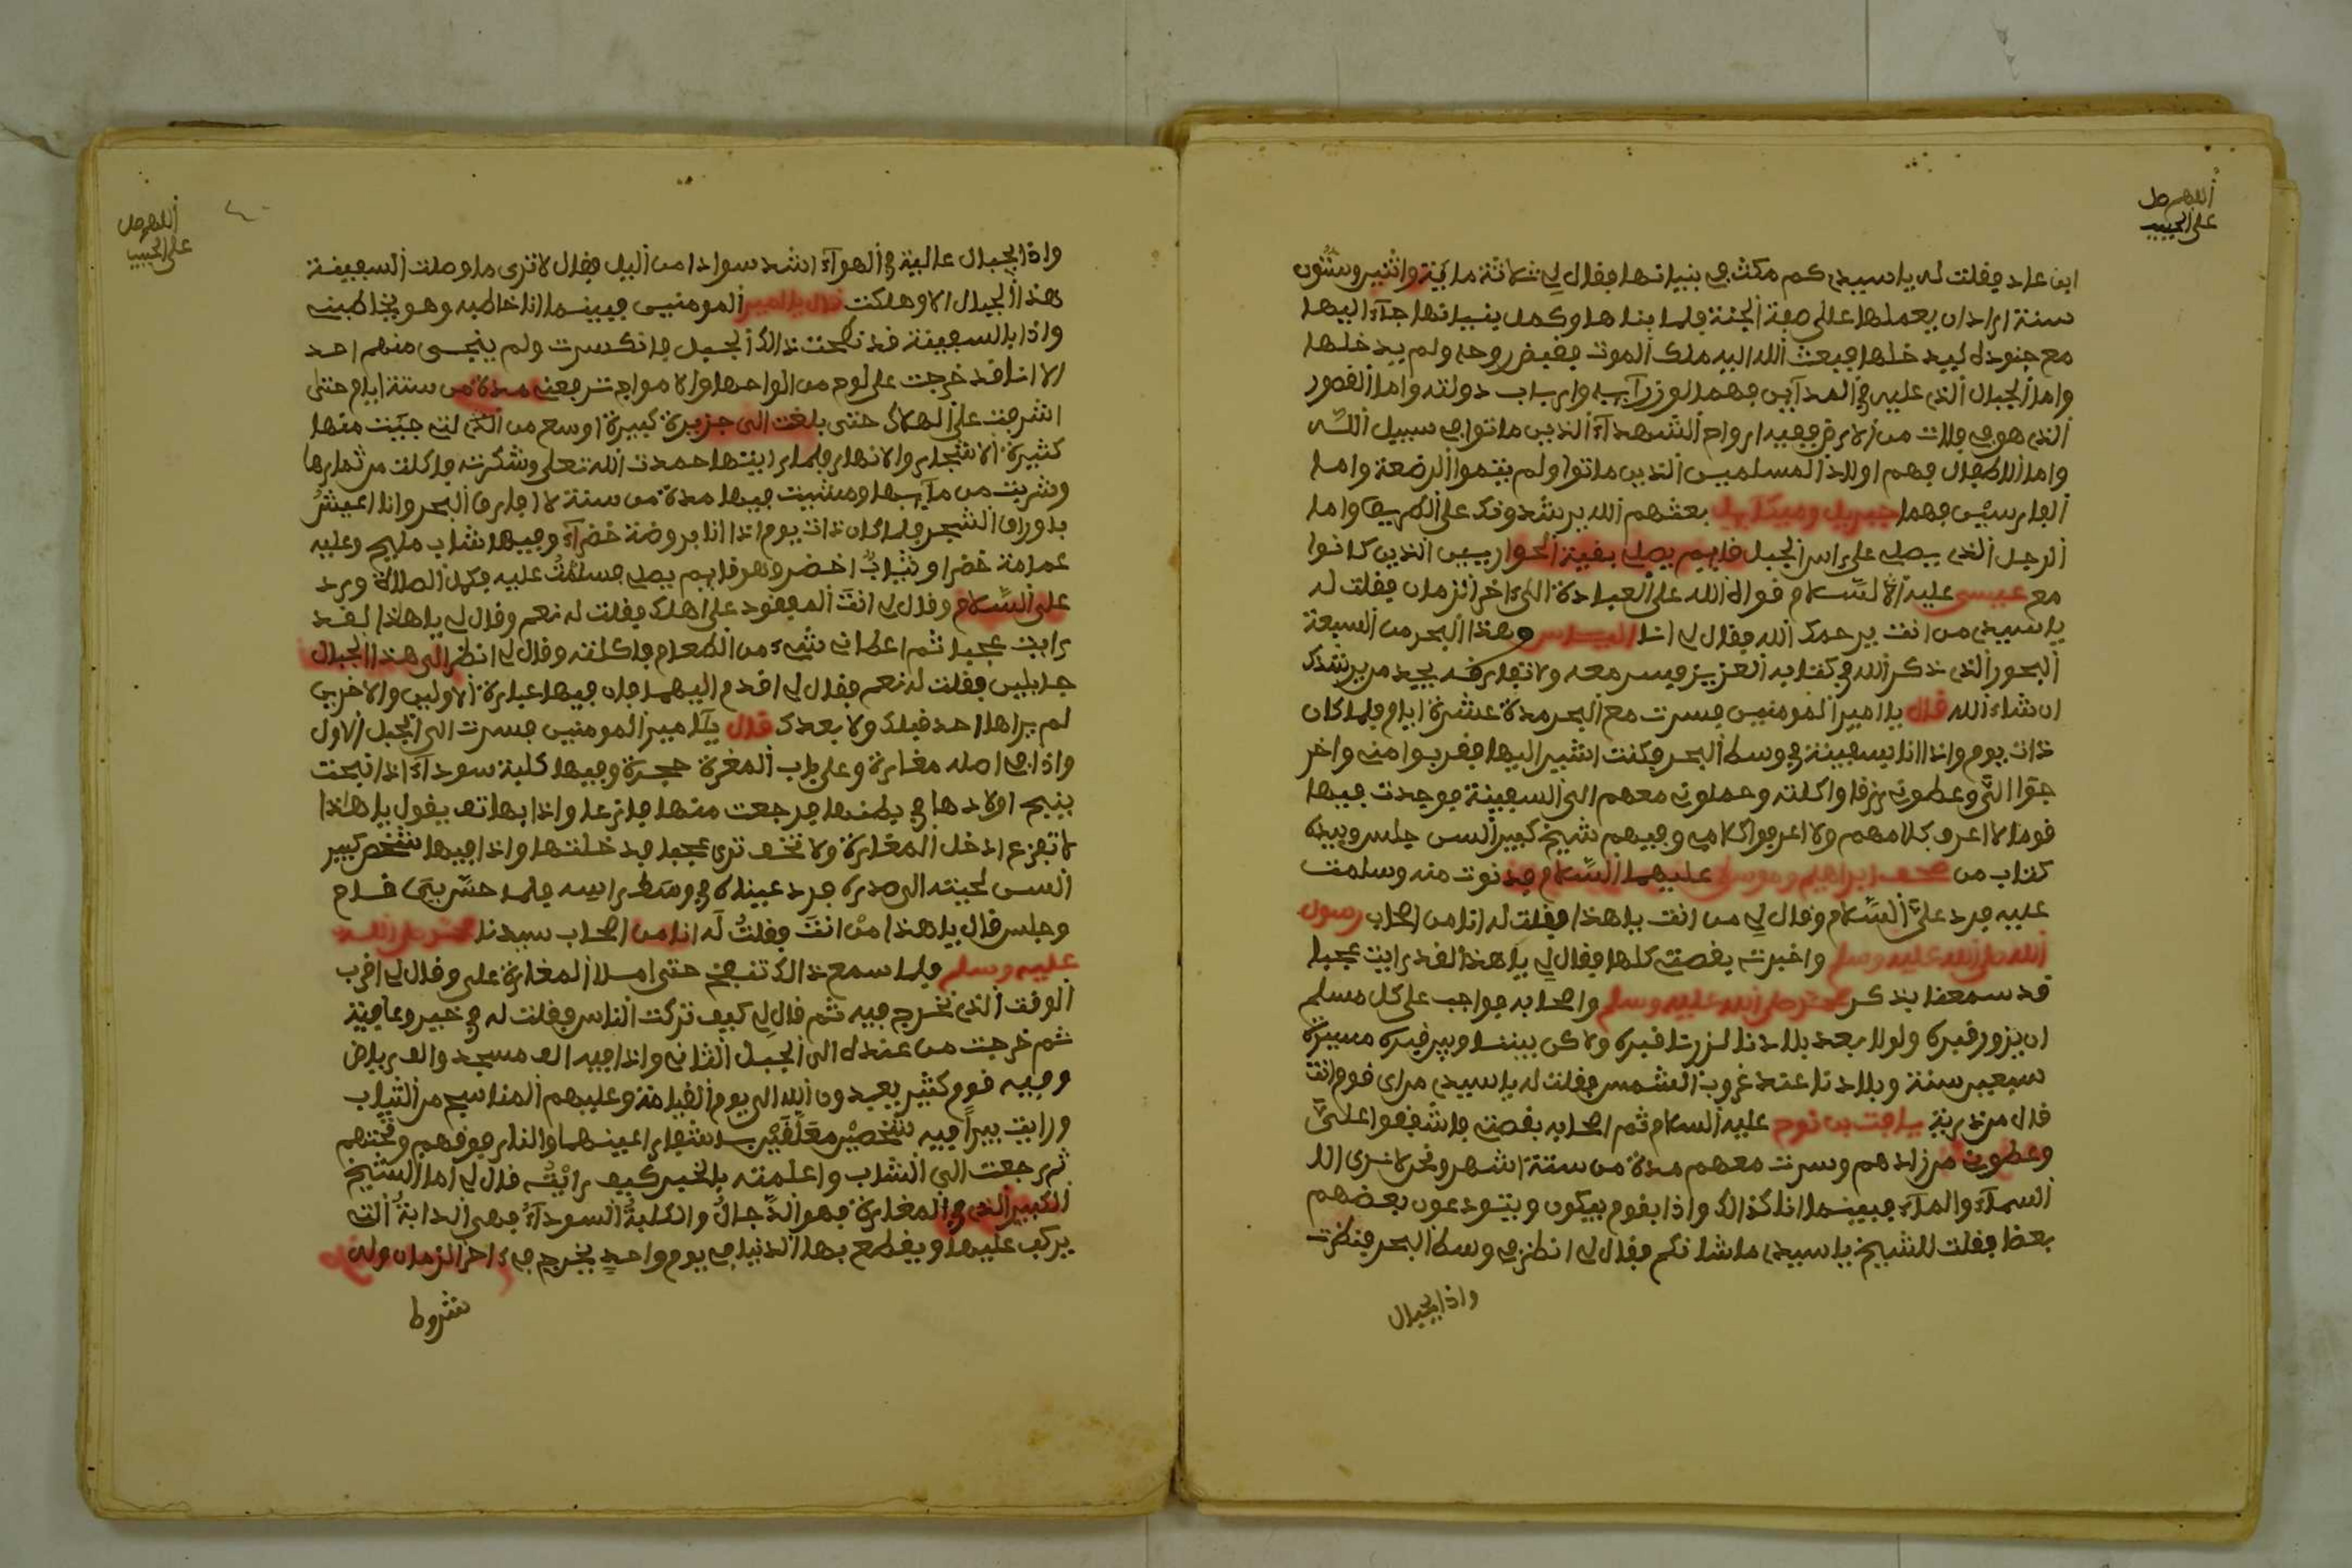 اللهم صل
على الحبيب
ابن عاد فقلت له يا سيدي كم مكث في بنيانها فقال لي ثلاثة ماية واثنين وستون
سنة اراد ان يعملها على صفة الجنة فلما بناها وكمل بنيانها جآء اليها
مع جنوده ليدخلها فبعث الله اليه ملك الموت فقبض روحه ولم يدخلها
واما الجبال الذي عليه في المدآين فهما لوزرآيه وارباب دولته واما القصور
الذي هو في فلات من الارض ففيه ارواح الشهدآء الذين ماتوا في سبيل الله
واما الاطفال فهم اولاد المسلمين الذين ماتوا ولم يتموا الرضعة واما
الفارسين فهما جبريل وميكآييل بعثهم الله يرشدونك على الطريق واما
الرجل الذي يصلي على راس الجبل قايم يصلي بقية الحواريين الذين كانوا
مع عيسى عليه السلام قواه الله على العبادة الى اخر الزمان فقلت له
يا سيدي من انت يرحمك الله فقال لي انا الياس وهذا البحر من السبعة
البحور الذي ذكر الله في كتابه العزيز فسر معه ولا تفارقه يجد من يرشدك
ان شاء الله قال يا امير المومنين فسرت مع البحر مدة عشرة ايام فلما كان
ذات يوم واذا انا بسفينة في وسط البحر فكنت اشير اليها فقربوا مني واخر
جوا الي وعطوني رزقا واكلته وحملوني معهم الى السفينة فوجدت فيها
قوما لا اعرف كلامهم ولا اعرفوا كلامي وفيهم شيخ كبير السن جلس وبيده
كتاب من صحف ابراهيم وموسى عليهما السلام فدنوت منه وسلمت
عليه فرد علي السلام وقال لي من انت يا هذا فقلت له انا من اصحاب رسول
الله صلى الله عليه وسلم واخبرته بقصتي كلها فقال لي يا هذا لقد رايت عجبا
قد سمعنا بذكر محمد صلى الله عليه وسلم واصحابه فواجب على كل مسلم
ان يزور قبره ولولا بعد بلادنا لزرنا قبره ولاكن بيننا وبين قبره مسيرة
سبعين سنة وبلادنا عند غروب الشمس فقلت له يا سيدي من اي قوم انت
قال من ذرية يافت بن نوح عليه السلام ثم اصحابه بقصتي فاشفقوا علي
وعطوني من زادهم وسرت معهم مدة من ستة اشهر ونحن لا نرى الا
السمآء والمآء فبينما انا كذالك واذا بقوم يبكون ويتودعون بعضهم
بعظا فقلت للشيخ يا سيدي ما شانكم فقال لي انظر في وسط البحر فنظرت
واذا بجبال
اللهم صل
على الحبيب
واذا بجبال عالية في الهوآء اشد سوادا من اليل فقال لا ترى ما وصلت السفينة
هذا الجبال الا وهلكت قال يا امير المومنين فبينما انا خاطبه وهو يخاطبني
واذا بالسفينة قد نطحت ذالك الجبل فانكسرت ولم ينجى منهم احد
الا انا قد خرجت على لوح من الواحها والامواج ترفعني مدة من ستة ايام حتى
اشرفت على الهلاك حتى بلغت الى جزيرة كبيرة اوسع من الذي جيت منها
كثيرة الاشجار والانهار فلما رايتها حمدت الله تعلى وشكرته فاكلت من ثمارها
وشربت من مآيها ومشيت فيها مدة من سنة لا افارق البحر وانا اعيش
بدوراق الشجر فلما كان ذات يوم اذا انا بروضة خضرآء وفيها شاب مليح وعليه
عمامة خضرا وثياب اخضر وهو قايم يصلي فسلمت عليه فكمل الصلاة ورد
علي السلام وقال لي انت المفقود على اهلك فقلت له نعم وقال لي يا هذا لقد
رايت عجبا ثم اعطاني شيء من الطعام فاكلته وقال لي انظر الى هذا الجبال
جابلين فقلت له نعم فقال لي اقدم اليهما فان فيها عبارة الاولين والاخرين
لم يراها احد قبلك ولا بعدك قال يآ امير المومنين فسرت الى الجبل الاول
واذا في اصله مغارة وعلى باب المغرة حجرة وفيها كلبة سودآء اذا نبحت
ينبح اولادها في بطنها فرجعت منها فازعا واذا بهاتف يقول يا هاذا
لا تفزع ادخل المغارة ولا تخف ترى عجبا فدخلتها واذا فيها شخص كبير
السن لحيته الى صدره فرد عيناه في وسط راسه فلما حس بي قام
وجلس قال يا هذا من انت فقلت له انا من اصحاب سيدنا محمد صلى الله
عليه وسلم فلما سمع ذالك تنفخ حتى املا المغارة علي وقال لي اقرب
الوقت الذي نخرج فيه ثم قال لي كيف تركت الناس فقلت له في خير وعافية
ثم خرجت من عنده الى الجبل الثاني واذا فيه الف مسجد والف رياض
وفيه قوم كثير يعبدون الله الى يوم القيامة وعليهم المناسيج من الثياب
ورايت بيرا فيه شخصين معلقين باشفار اعينهما والنار فوقهم وتحتهم
ثم رجعت الى الشاب واعلمته بالخبر كيف رايت قال لي اما الشيخ
الكبير الذي في المغارة فهو الدجال والكلبة السودآء فهي الدابة التي
يركب عليها ويقطع بها الدنيا في يوم واحد يخرج في اخر الزمان وله
شروط